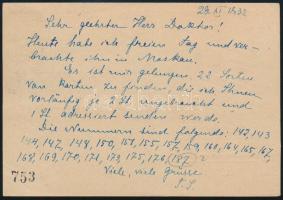 29 XI 1932
Sehr geehrter Herr Doktor!
Heute habe ich freien Tag und ver-
brachte ihn in Moskau.
Es ist mir gelungen, 22 Sorten
van Karten zu finden, die ich Ihnen
vorläufig je 2 St. und
1 St. adressiert senden werde.
Die Nummern sind folgende: 142, 143
144, 147, 148, 150, 151, 155, 157, 159, 160, 164, 165, 167,
168, 169, 170, 171, 173, 175, 176, (187)?
Viele, viele Grüsse
753